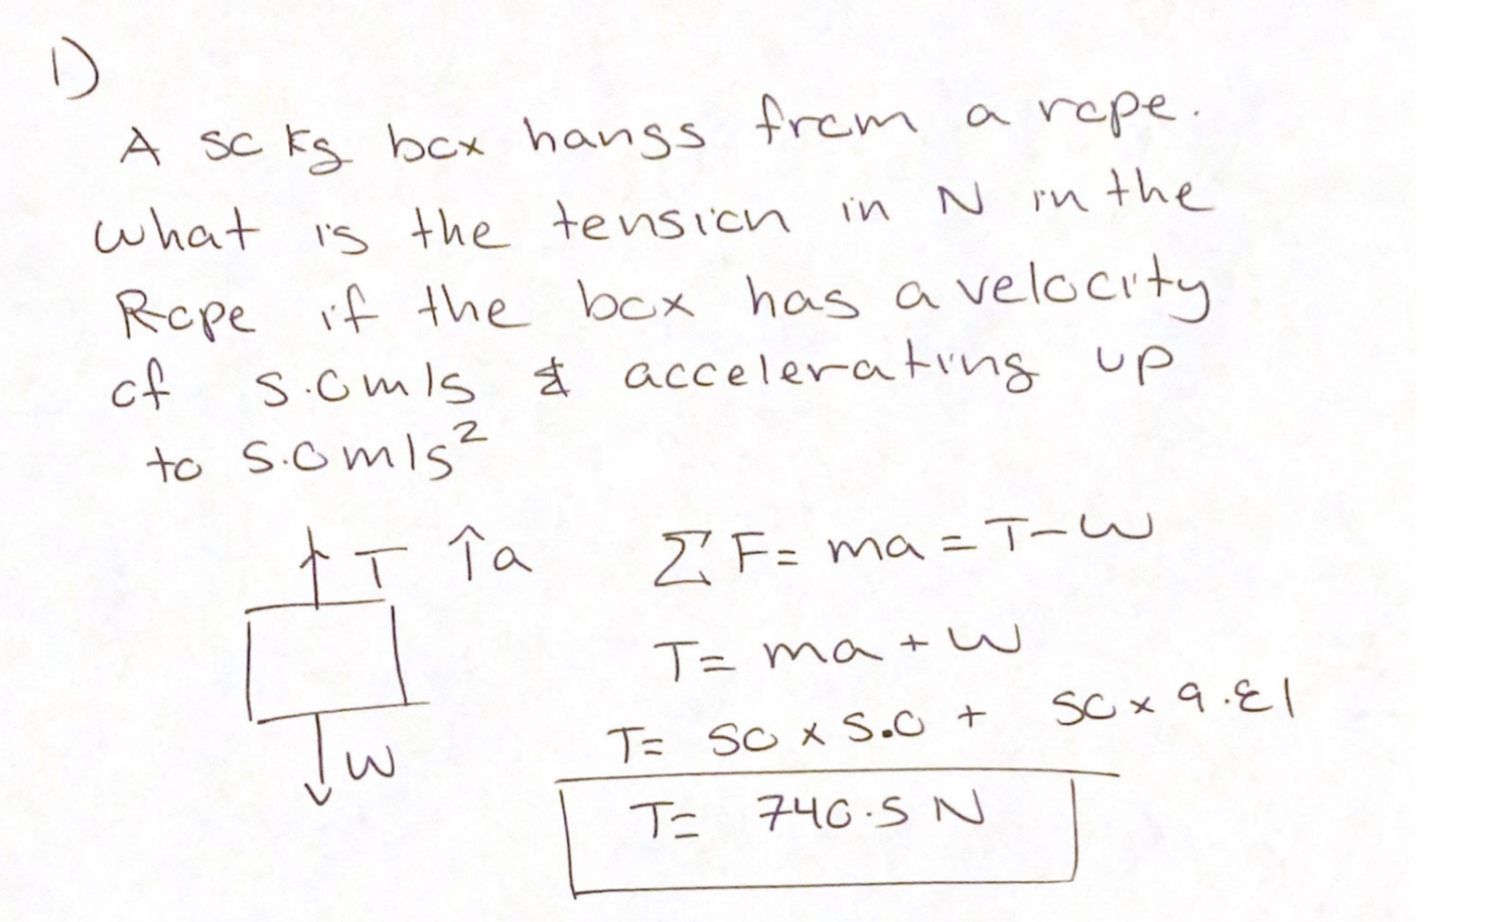 1)
A 50 kg box hangs from a rope.
What is the tension in N in the
Rope if the box has a velocity
of 5.0 m/s & accelerating up
to 5.0 m/s²
↑ T ↑a ΣF = ma = T - W
T = ma + W
T = 50 x 5.0 + 50 x 9.81
W
T = 740.5 N